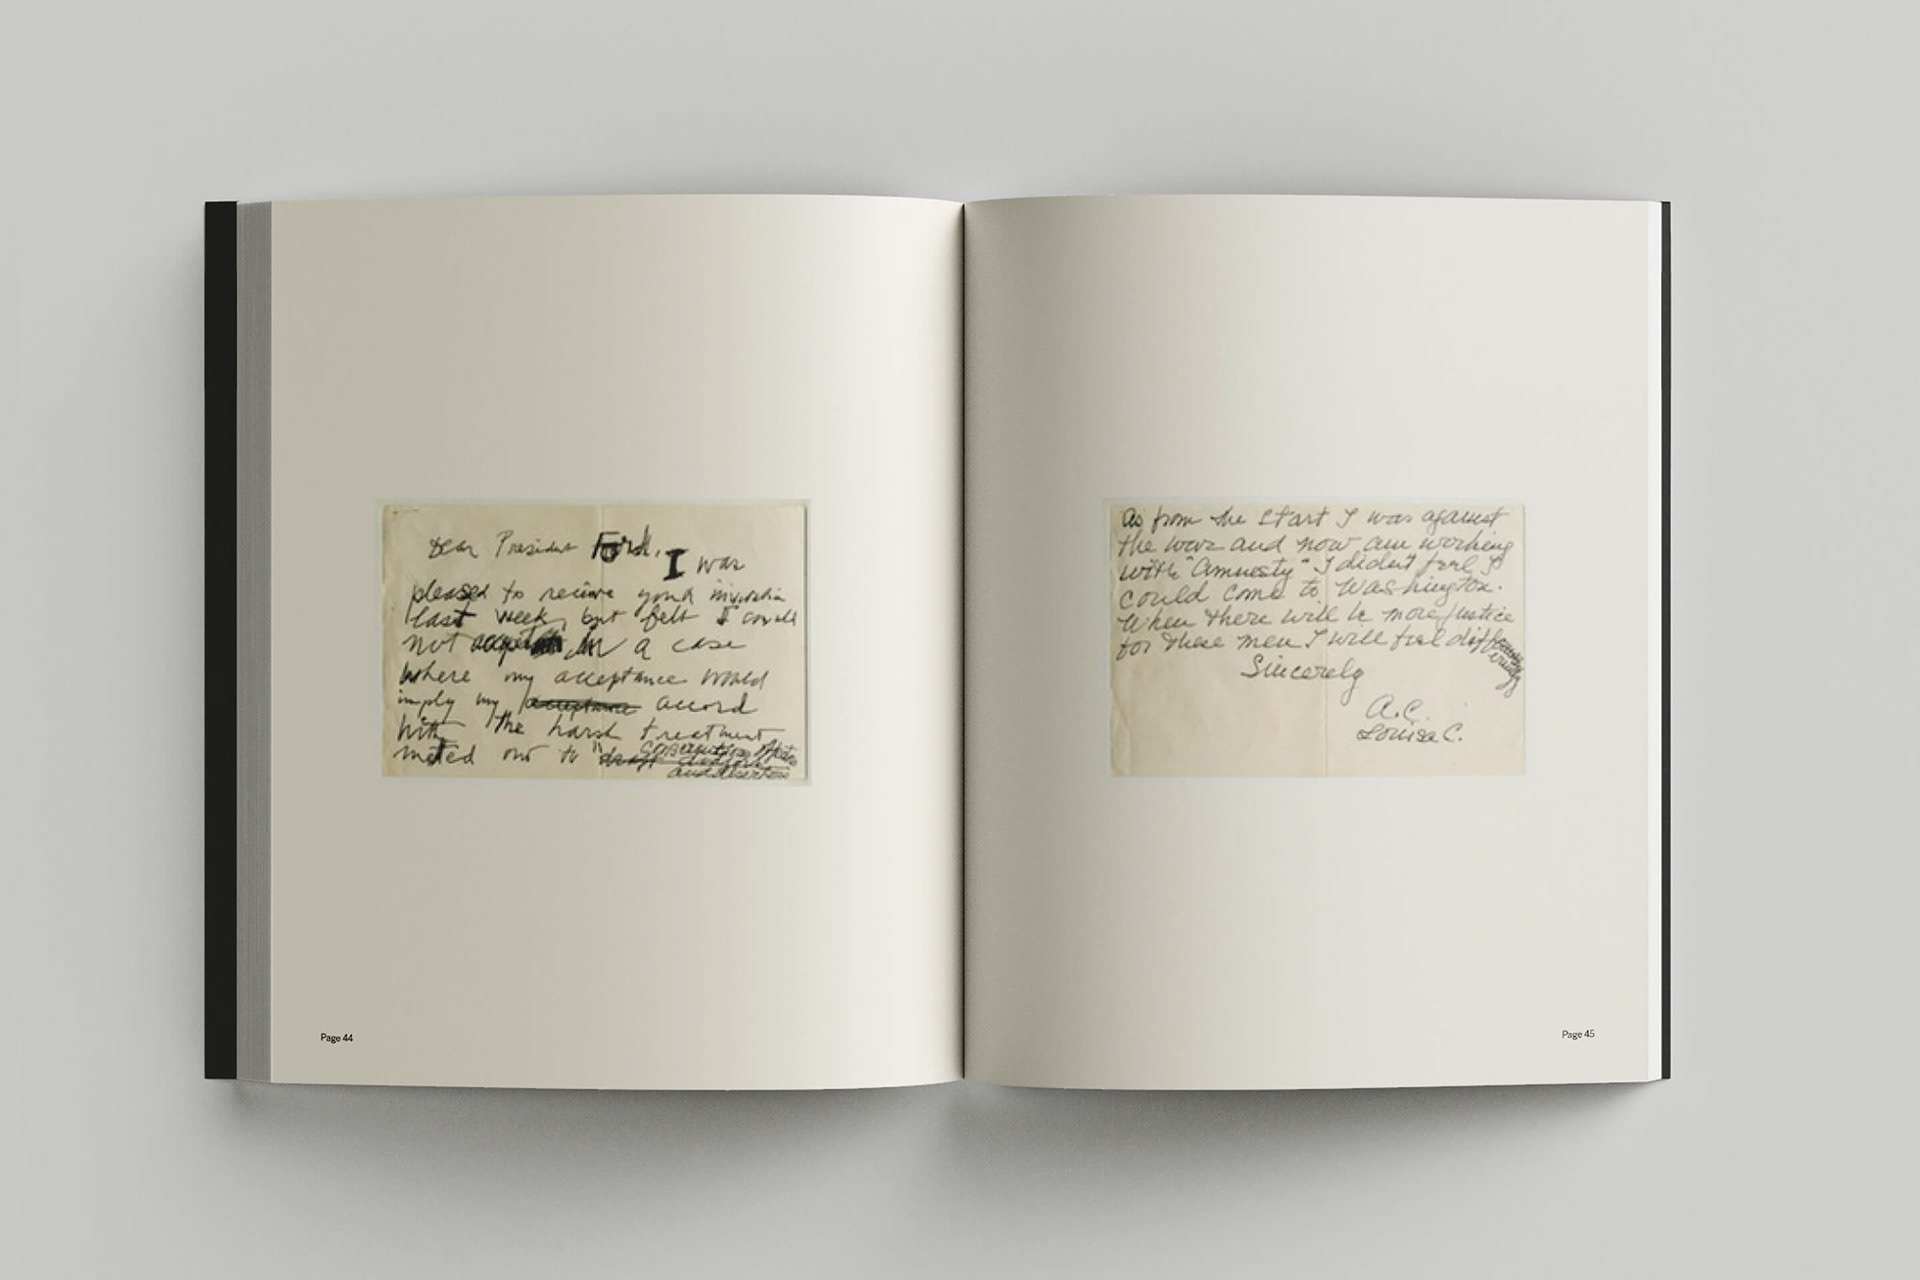 Dear President Ford,
I was
pleased to receive your invitation
last week, but felt I could
not accept in a case
where my acceptance would
imply my acceptance accord
with the harsh treatment
meted out to "draft dodgers
Conscientious
and deserters
Page 44
As from the start I was against
the war and now am working
with "Amnesty" I didn't feel I
could come to Washington.
When there will be more justice
for these men I will feel differently
Sincerely
A.C.
Louise C.
Page 45